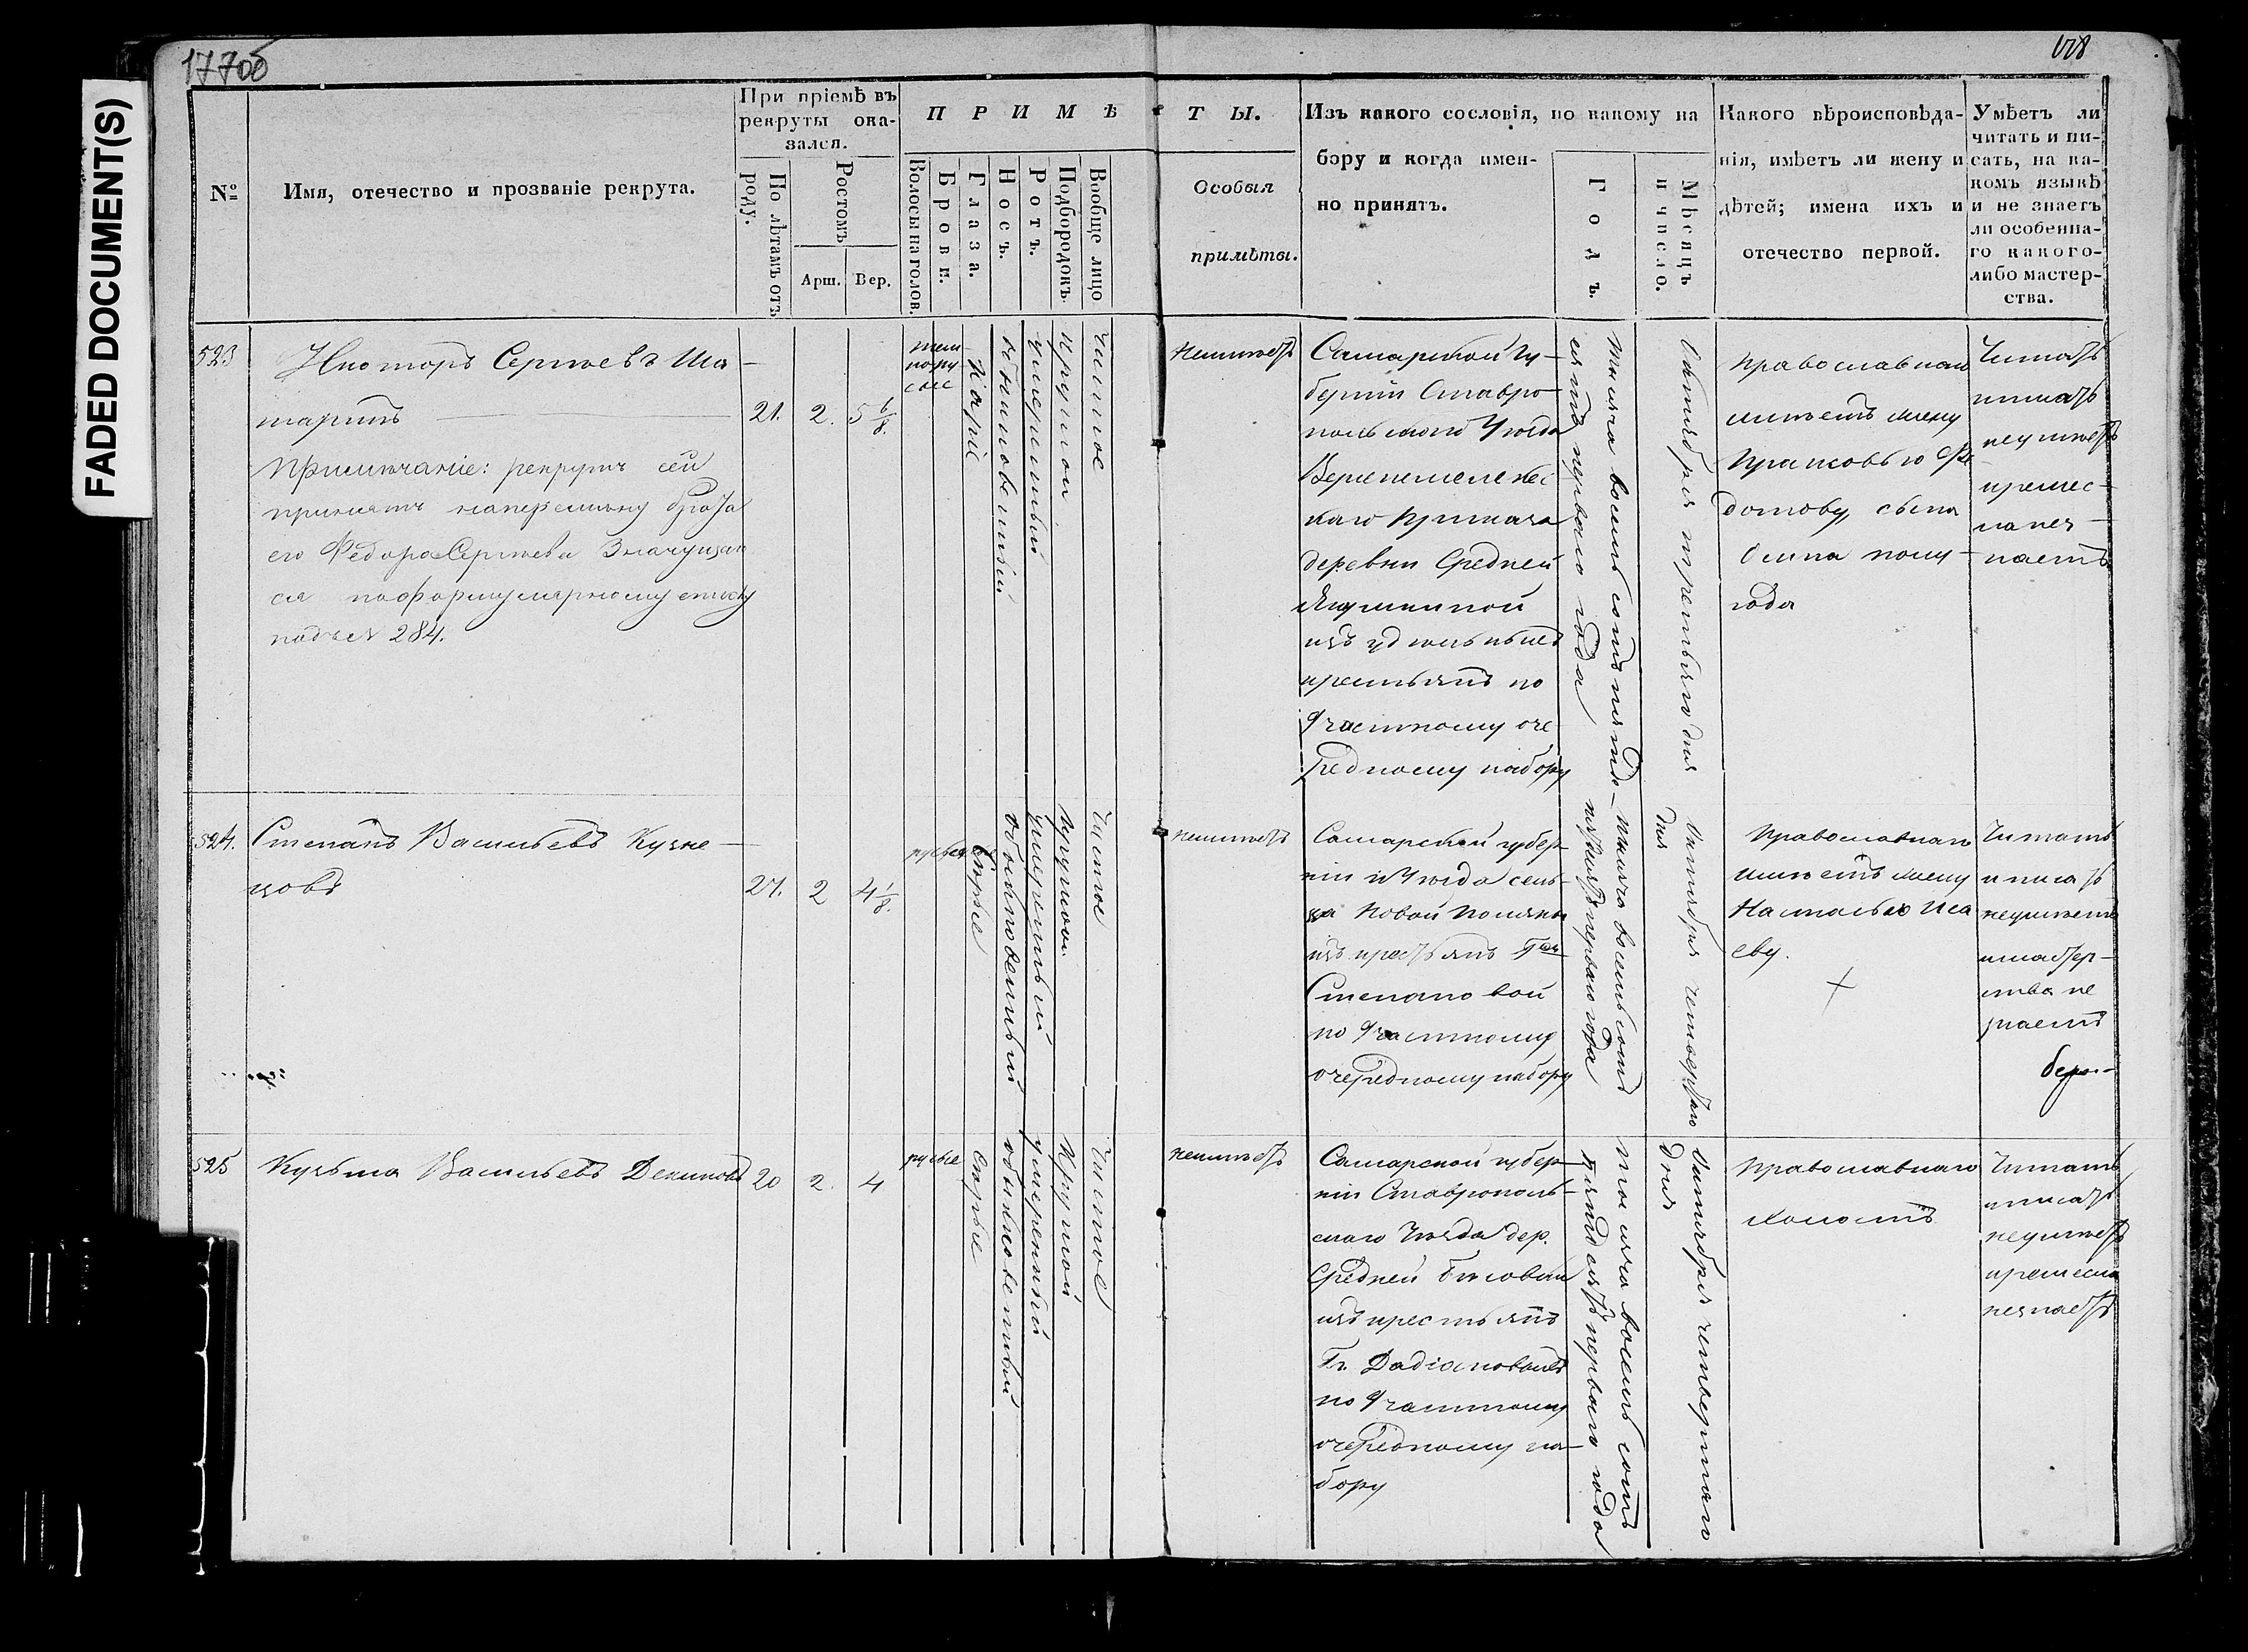 1770б
FADED DOCUMENT(S)
№
Имя, отечество и прозваніе рекрута.
При пріемѣ въ
рекруты ока-
зался.
По лѣтамъ отъ
роду.
Ростомъ
Арш.
Вер.
ПРИМѢ
Волосы на голов.
Брови.
Глаза.
Носъ.
Ротъ.
Подбородокъ.
Вообще лицо
ТЫ.
Особыя
примѣты.
Изъ какого сословія, по какому на
бору и когда имен-
но принятъ.
Годъ.
Мѣсяцъ
и число.
Какого вѣроисповѣда-
нія, имѣетъ ли жену и
дѣтей; имена ихъ и
отечество первой.
Умѣетъ ли
читать и пи-
сать, на ка-
комъ языкѣ
и не знаетъ
ли особенна-
го какого-
либо мастер-
ства.
523
Сергѣевъ Ша
Примѣчаніе: рекрутъ сей
принятъ наперемѣну брата
его Федора Сергѣева Значущаго
ся поформулярному списку
284.
21.
2.
5 6/8.
тем-
норусые
Каріе
обыкновенный
умеренный
круглой
чистое
неимѣетъ
Самарской Гу-
берніи Ставро-
польскаго Уѣзда
каго Приказа
деревни Средней
изъ удѣльныхъ
крестьянъ по
Участному оче
редному набору
тысяча восемь сотъ пятьде-
сятъ перваго года
Октября третьяго дня
Православнаго
имѣетъ жену
Прасковью Фе
дотову, сына
Осипа полу-
года
Читать
писать
неумѣетъ
ремес-
ла нез-
наетъ
524.
Степанъ Васильевъ Кузне-
цовъ
27.
2
4 1/8.
русые
Сѣрые
обыкновенный
умеренный
круглой
чистое
неимѣетъ
Самарской губер-
ніи и Уѣзда сель-
ца Новой Поляны
изъ крестьянъ Г-жи
Степановой
по Участному
очередному набору
тысяча восемь сотъ
пятьдесятъ перваго года
Октября четвертаго
дня
Православнаго
имѣетъ жену
Наталью Иса
еву.
Читать
и писать
неумѣетъ
мастер-
ства не
знаетъ
525
Кузьма Васильевъ
20
2.
4
русые
Сѣрые
обыкновенный
умеренный
Круглой
Чистое
неимѣетъ
Самарской губер-
ніи Ставрополь-
скаго Уѣзда дер.
Средней
изъ крестьянъ
Г.
по Участному
очередному на-
бору
тысяча восемь сотъ
пятьдесятъ перваго года
Октября четвертаго
дня
Православнаго
холостъ
Читать
писать
неумѣетъ
ремесла
незнаетъ